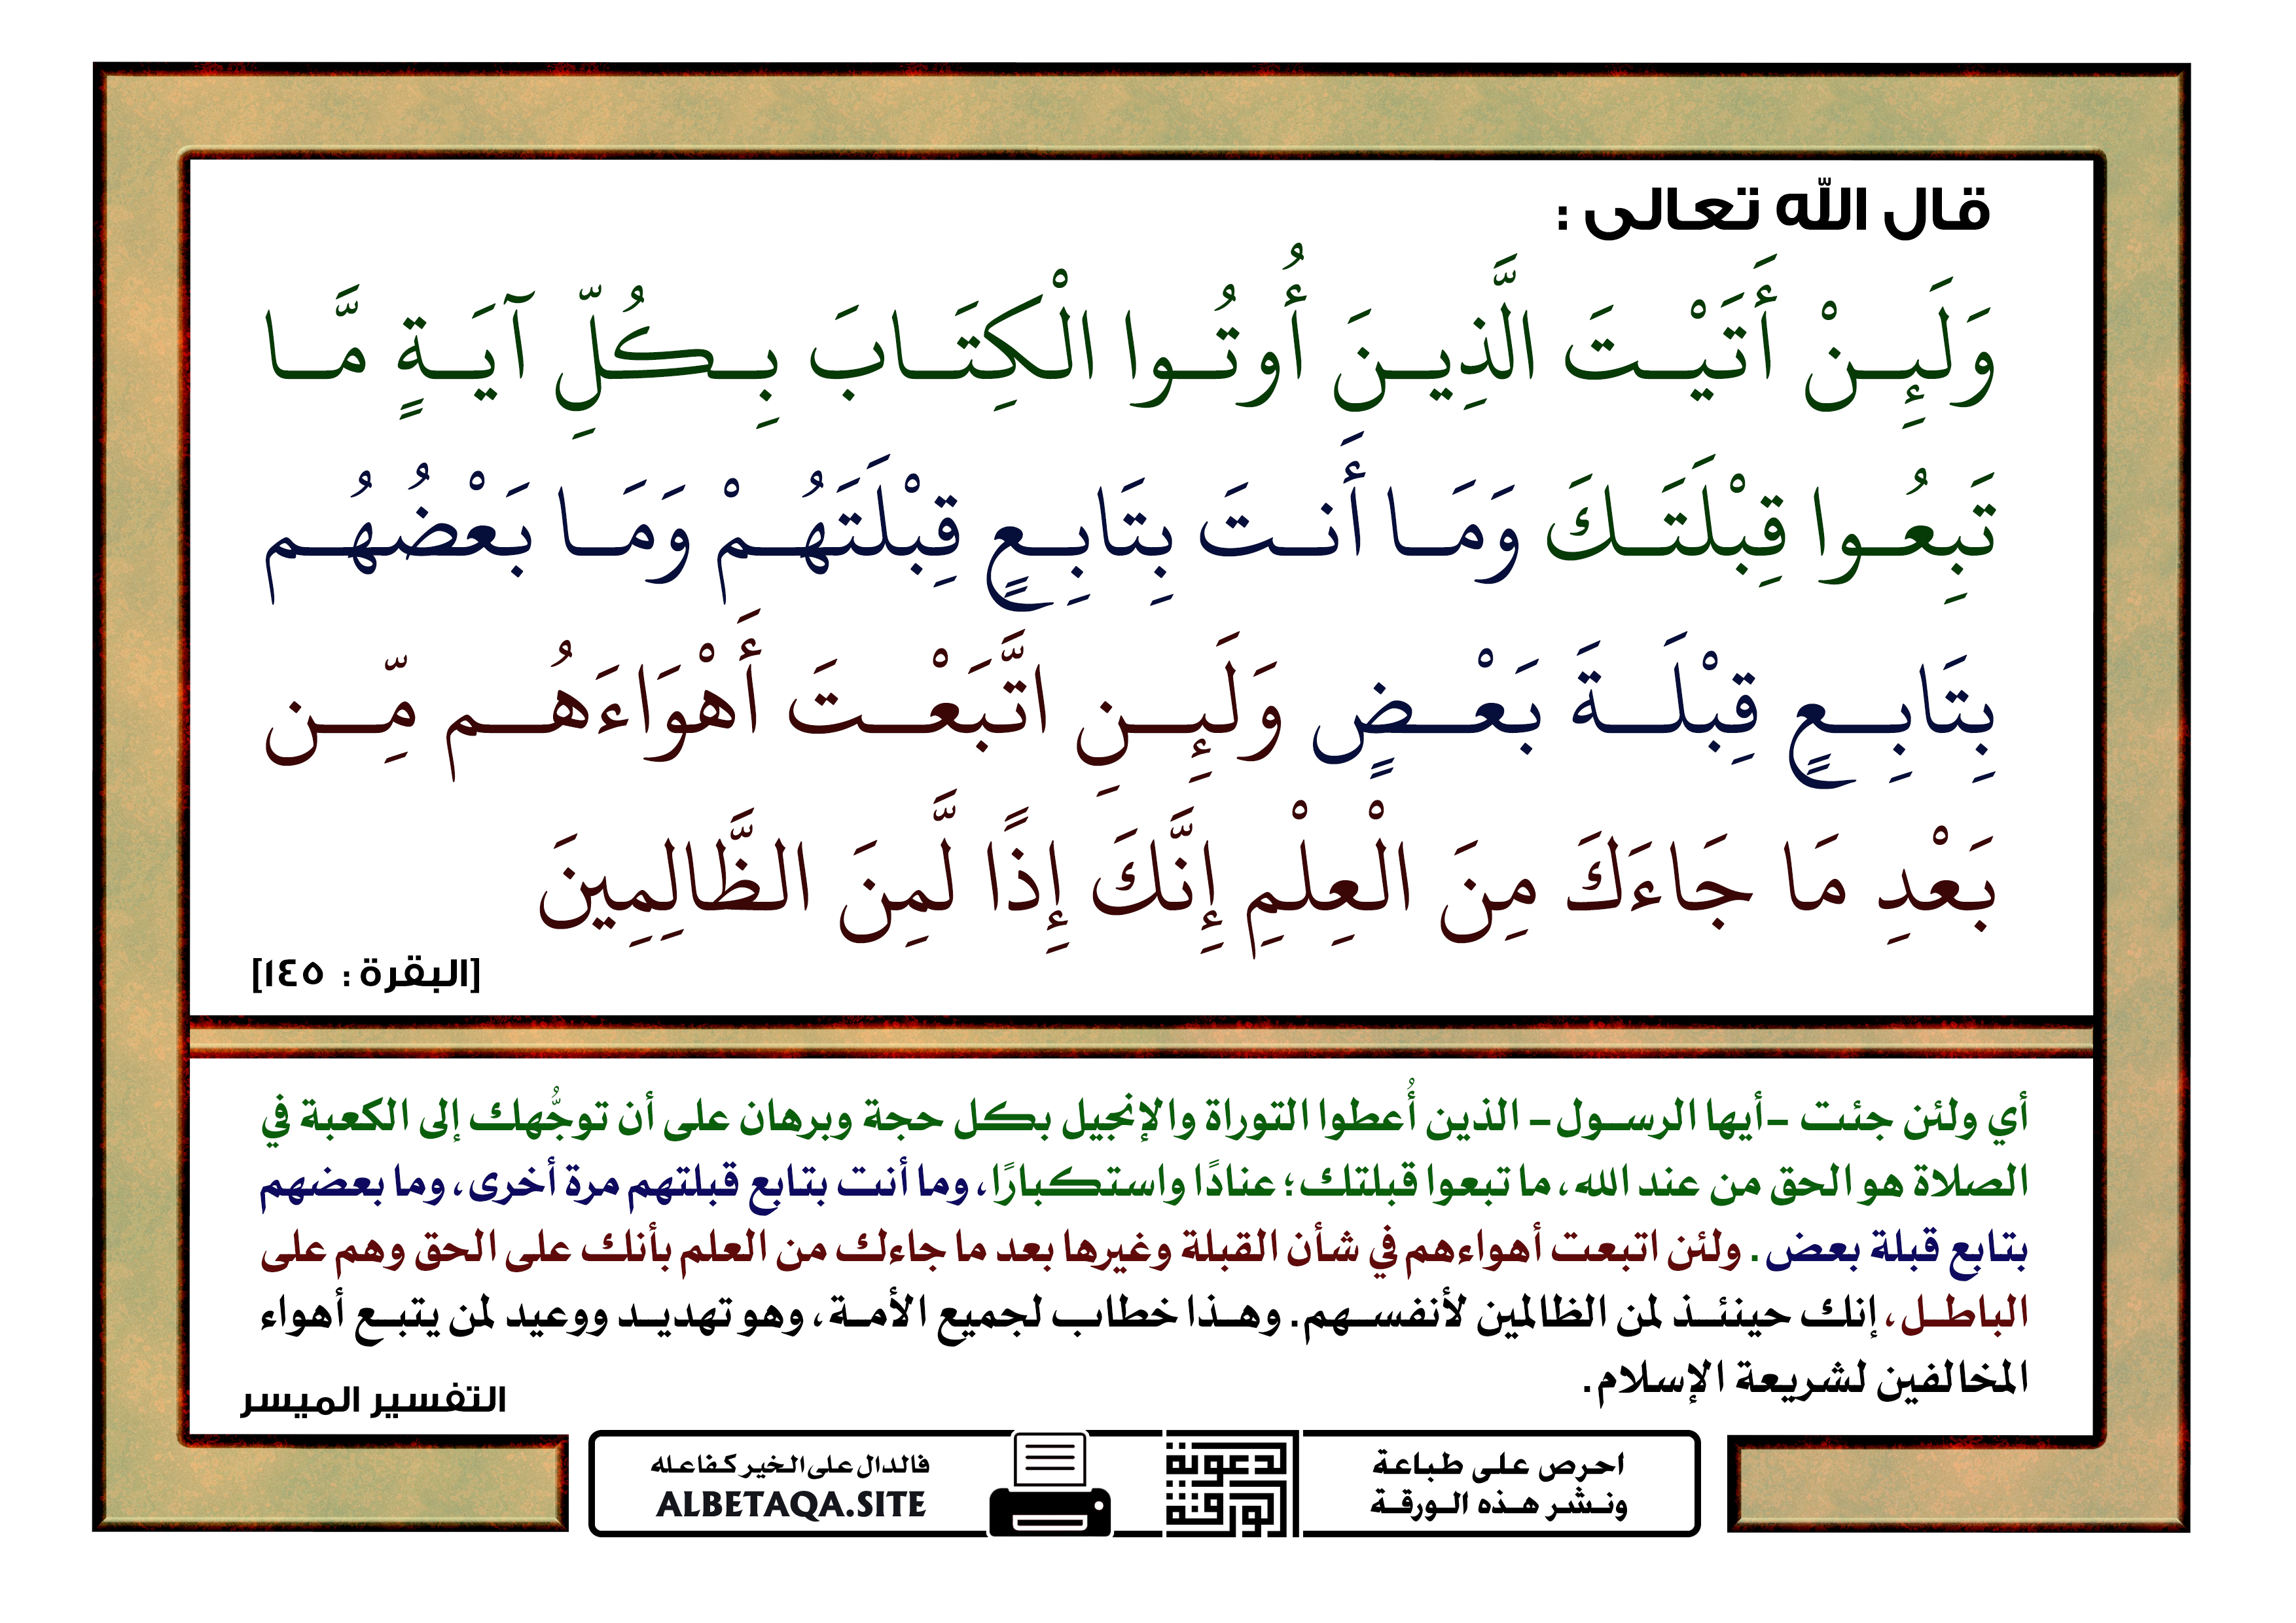 قال الله تعالى :
وَلَئِنْ أَتَيْتَ الَّذِينَ أُوتُوا الْكِتَابَ بِكُلِّ آيَةٍ مَّا
تَبِعُوا قِبْلَتَكَ وَمَا أَنتَ بِتَابِعٍ قِبْلَتَهُمْ وَمَا بَعْضُهُم
بِتَابِعٍ قِبْلَةَ بَعْضٍ وَلَئِنِ اتَّبَعْتَ أَهْوَاءَهُم مِّن
بَعْدِ مَا جَاءَكَ مِنَ الْعِلْمِ إِنَّكَ إِذًا لَّمِنَ الظَّالِمِينَ
[البقرة : ١٤٥]
أي ولئن جئت -أيها الرسول- الذين أُعطوا التوراة والإنجيل بكل حجة وبرهان على أن توجُّهك إلى الكعبة في
الصلاة هو الحق من عند الله، ما تبعوا قبلتك؛ عنادًا واستكبارًا، وما أنت بتابع قبلتهم مرة أخرى، وما بعضهم
بتابع قبلة بعض. ولئن اتبعت أهواءهم في شأن القبلة وغيرها بعد ما جاءك من العلم بأنك على الحق وهم على
الباطل، إنك حينئذ لمن الظالمين لأنفسهم. وهذا خطاب لجميع الأمة، وهو تهديد ووعيد لمن يتبع أهواء
المخالفين لشريعة الإسلام.
التفسير الميسر
احرص على طباعة
ونشر هذه الورقة
لدعوتة
الورقتة
فالدال على الخير كفاعله
ALBETAQA.SITE